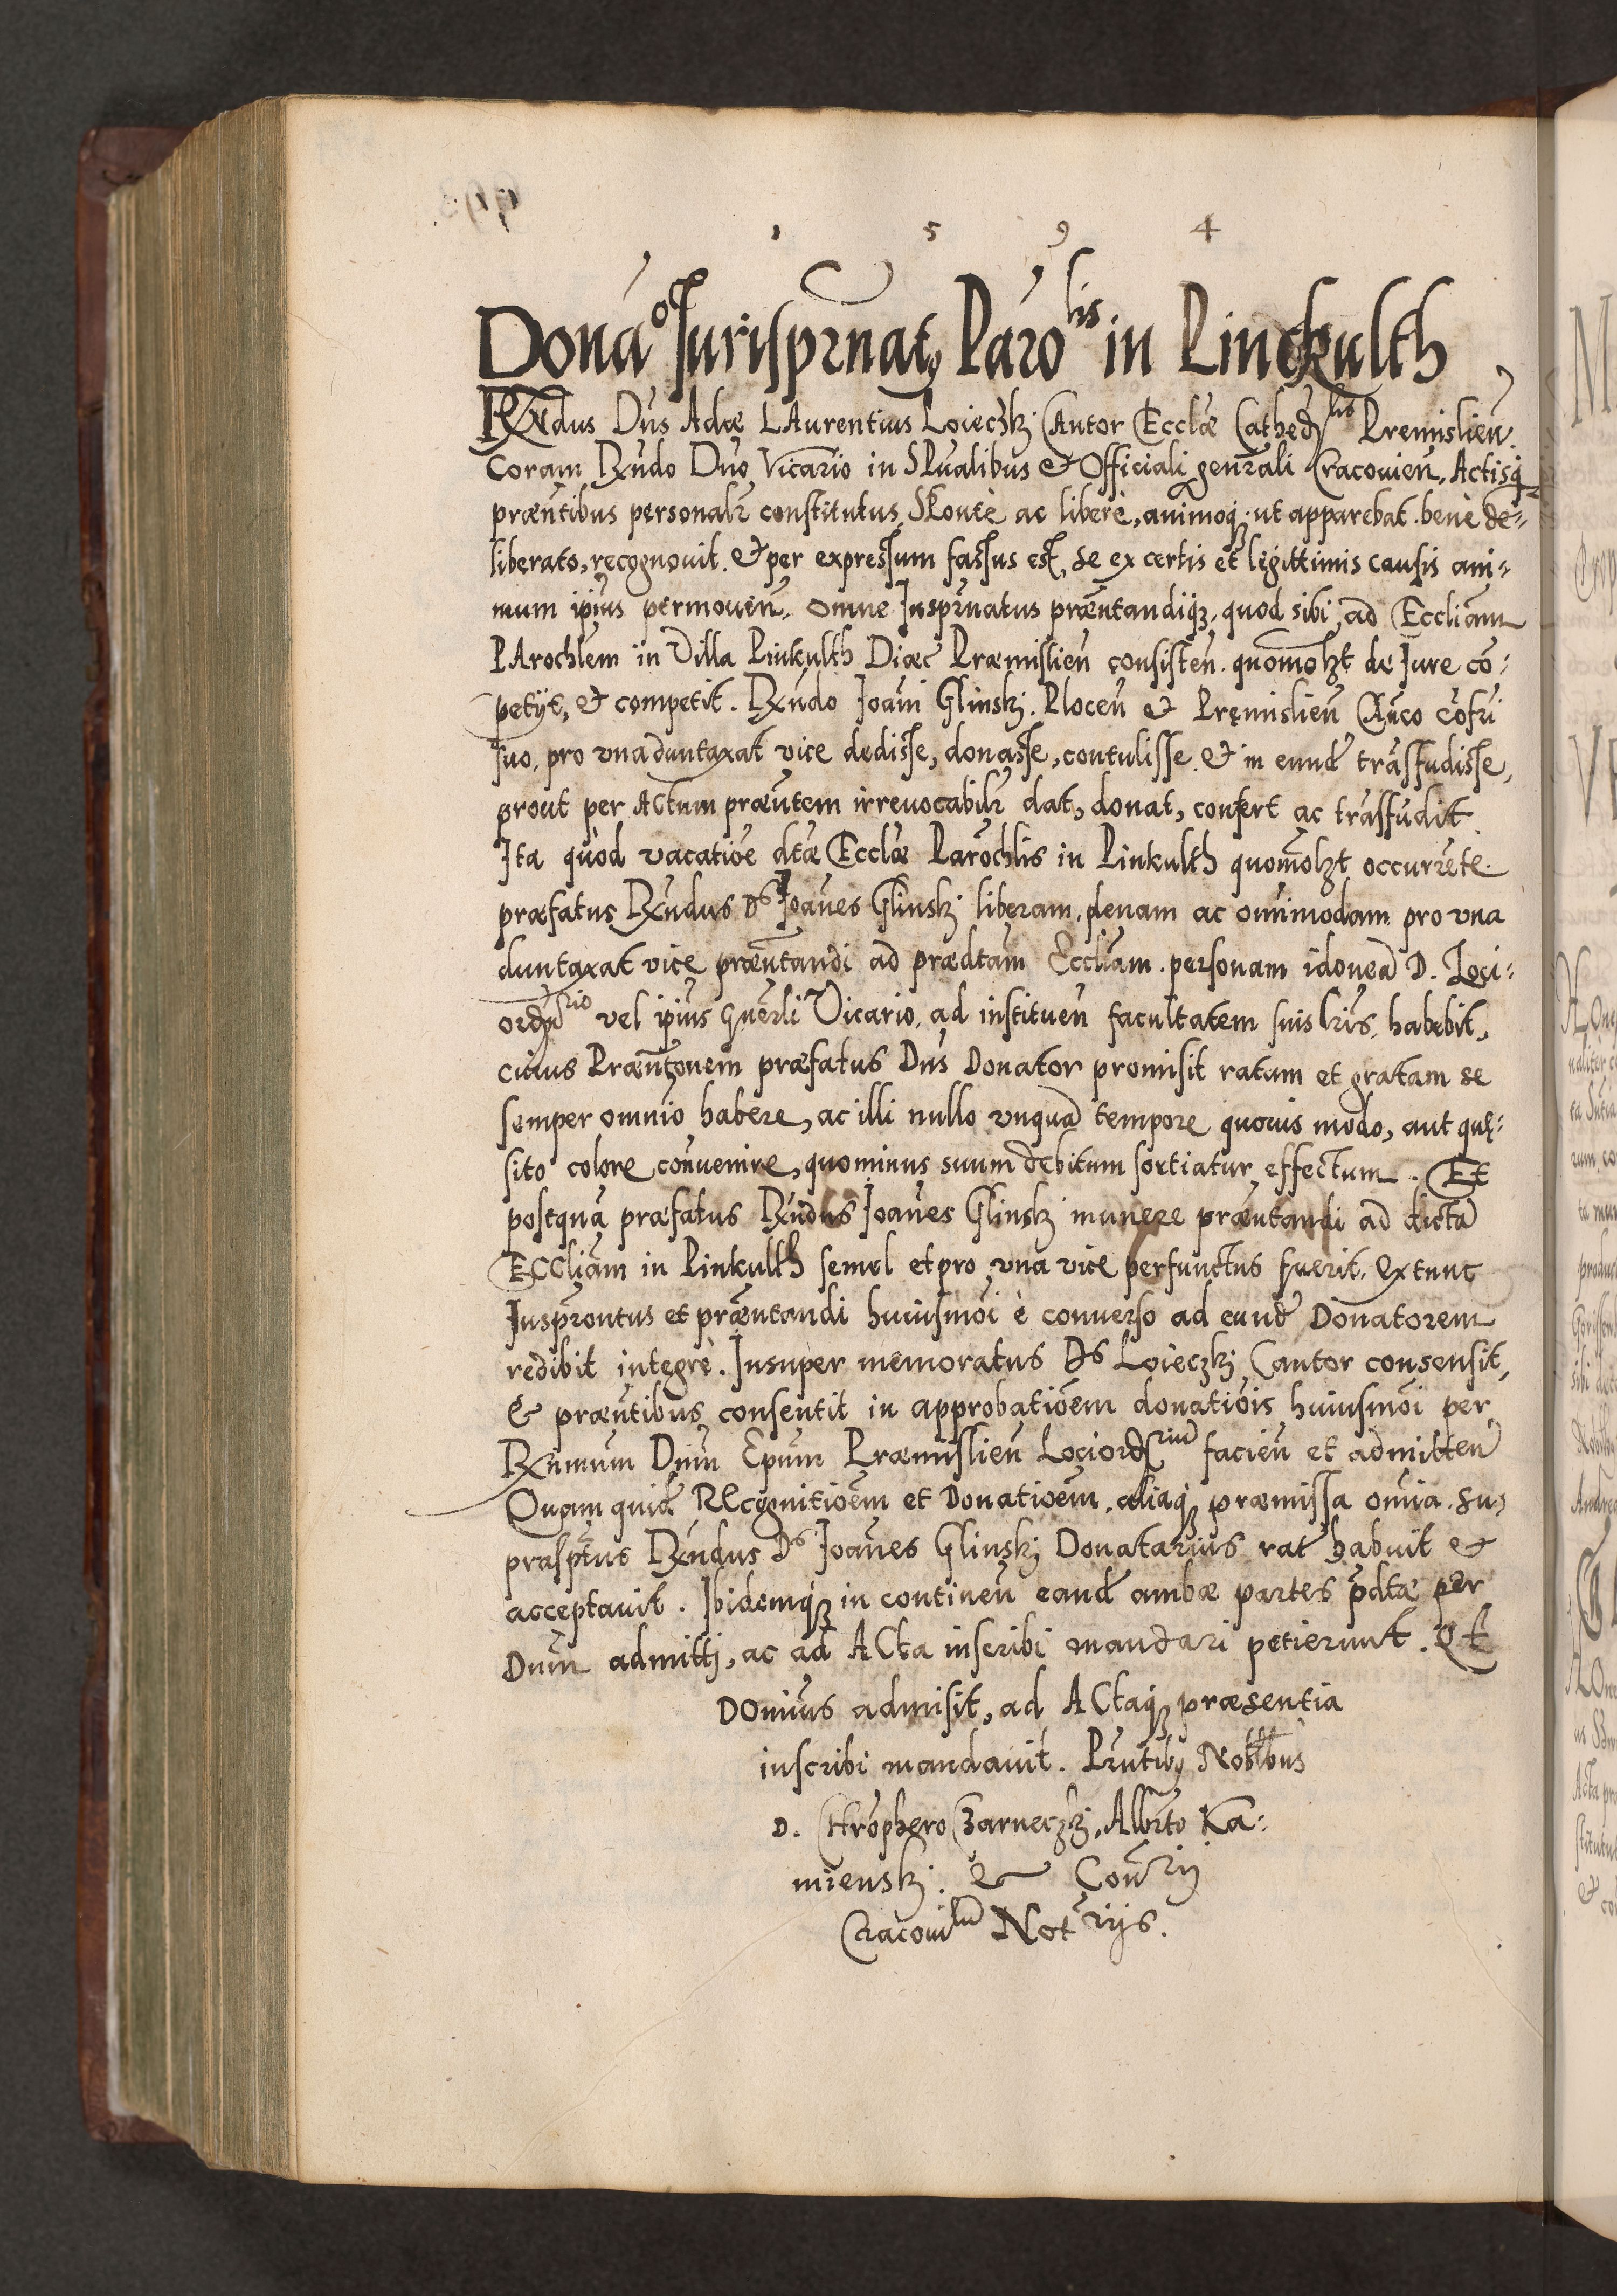 1 5 9 4
Dona͠o Jurisprn̄at, Paro͠lis in Linckulth
Rx̄ndus Dn̄s Adæ LAurentius Loieczkj CAntor Eccl͠æ Cathed͠lis Premislien̄.
Coram Rx̄ndo Dn̄o Vicario in SPualibus & Officiali gen̄rali Cracouien̄, Actisq̢
præn̄tibus personalr̄ constitutus SPontè ac liberè, animoq̢ ut apparebat benè de=
liberato, recognouit & per expressum fassus est, se ex certis et legittimis causis ani=
mum ip̄ius permouen̄. omne Jusprn̄atus præn̄tandiq̢, quod sibi ad Eccliam̄
PArochlēm in Villa Pinkulth Diæc Præmislien̄ consisten̄. quomol̄zt de Jure cō=
petÿt, & competit. Rx̄ndo Joan̄i Glinskj. Plocen̄ & Pręmislien̄ CAn̄co cōfrī
suo, pro vna duntaxat vice dedisse, donasse, contulisse & in eund͠ trāsfudisse,
prout per ACtum præn̄tem irreuocabilr̄ dat, donat, confert ac trāsfudit.
Ita quòd vacatiōe dt͠æ Eccl͠æ Parochl̄is in Pinkulth quomol̄zt occurrēte.
præfatus Rx̄ndus Ds Joan̄es Glinskj liberam, plenam ac omnimodam pro vna
duntaxat vice præn̄tandi ad prædtām Eccliam̄ personam idoneā D. Loci=
ord͠rio vel ip̄ius Gn̄erli Vicario, ad instituen̄ facultatem suis lr̄is habebit,
cuius Præn̄tōnem præfatus Dn̄s Donator promisit ratum et gratam se
semper omnio habere, ac illi nullo vnquā tempore quouis modo, aut quę=
sito colore conuenire, quominus suum debitum sortiatur effectum. Et
postquā præfatus Rx̄ndus Joan̄es Glinskj munere præn̄tandi ad dictā
ECCliām in Pinkulth semel et pro vna vice perfunctus fuerit. extunc
Jusprōntus et præn̄tandi huiusmōi è conuerso ad eund͠ Donatorem
redibit integrè. Insuper memoratus Ds Loieczkj Cantor consensit,
& præn̄tibus consentit in approbatiōem donatiōis huiusmōi per
Rx̄mum Dn̄m Ep̄um Præmislien̄ Lociord͠rium facien̄ et admitten̄
Quam quid͠ REcognitiōem et Donatiōem, aliaq̢ præmissa omīa su=
prasptus Rx̄ndus Ds Joan̄es Glinskj Donatarius rat͠ habuit &
acceptauit. Ibidemq̢ in continen̄ eand͠ ambæ partes p̄dtæ per
Dn̄m admitti, ac ad ACta inscribi mandari petierunt. Et
DOmin̄us admisit, ad ACtaq̢ præsentia
inscribi mandauit. Prn̄tibȝ Nobilibus
D. CHrōphero Czarneczkj, Albr̄to Ka=
mienskj. & Con̄rij
Cracouium Not͠rijs.